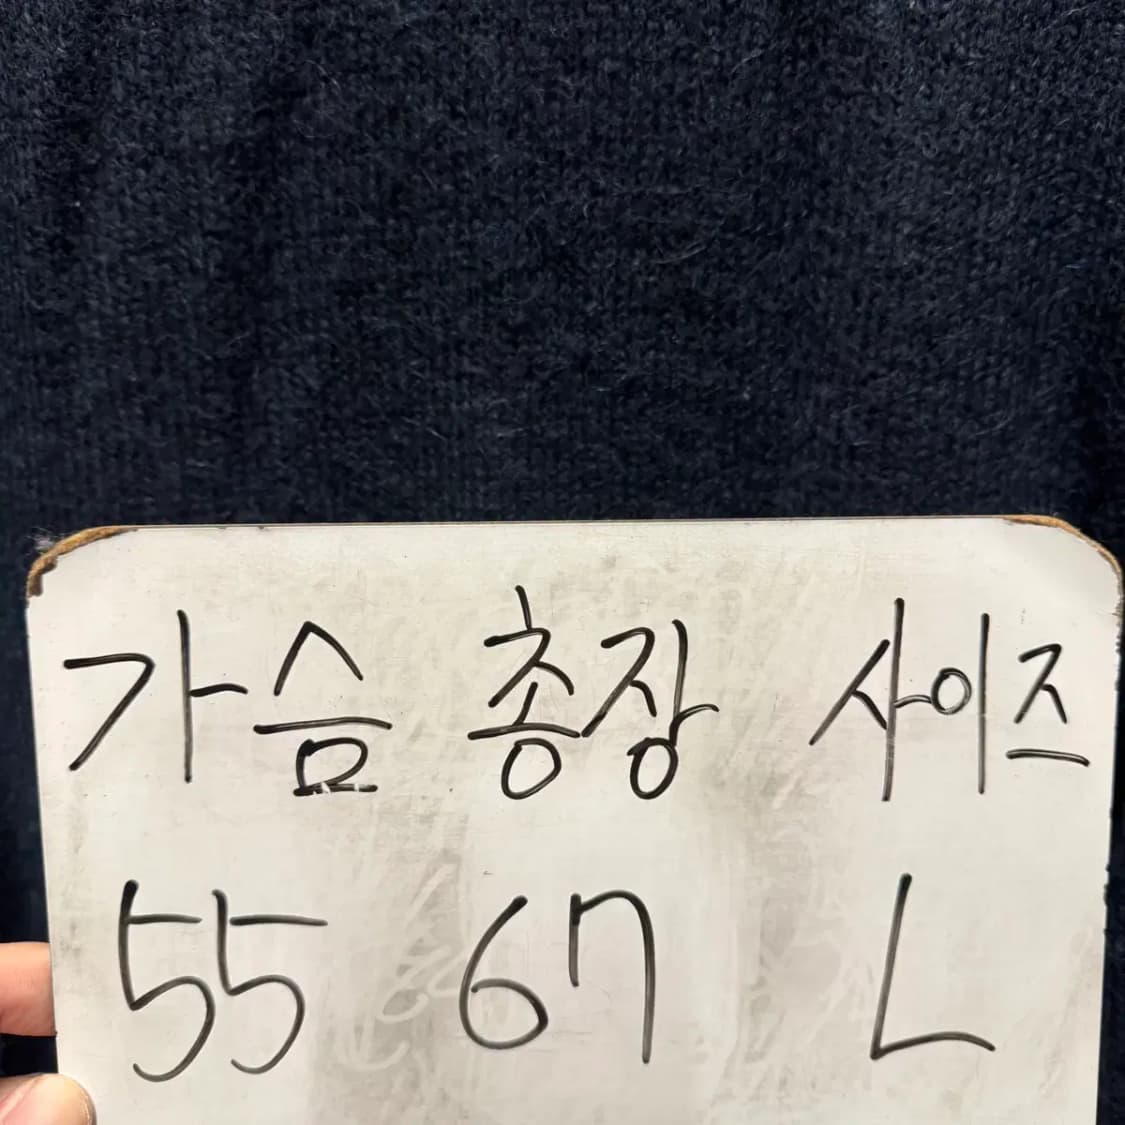 가슴 총장 사이즈
55 67 L